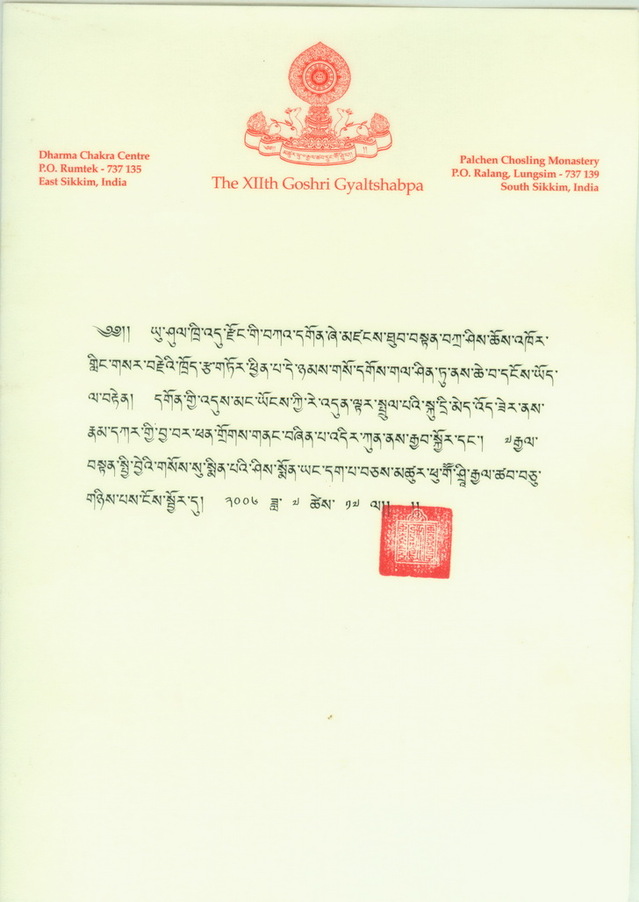 Dharma Chakra Centre
P.O. Rumtek - 737 135
East Sikkim, India
The XIIth Goshri Gyaltshabpa
Palchen Chosling Monastery
P.O. Ralang, Lungsim - 737 139
South Sikkim, India
༄༅།། ཡུ་ཤུལ་ཁྲི་འདུ་རྫོང་གི་བཀའ་དགོན་ཞེ་མཛངས་ཐུབ་བསྟན་བཀྲ་ཤིས་ཆོས་འཁོར་
གླིང་གསར་བརྗེའི་ཁྲོད་རྩ་གཏོར་ཕྱིན་པ་དེ་ཉམས་གསོ་དགོས་གལ་ཤིན་ཏུ་ནས་ཆེ་བ་དངོས་ཡོད་
ལ་བརྟེན། དགོན་གྱི་འདུས་མང་ཡོངས་ཀྱི་རེ་འདུན་ལྟར་སྤྲུལ་པའི་སྐུ་དྲི་མེད་འོད་ཟེར་ནས་
རྣམ་དཀར་གྱི་བྱ་བར་ཕན་གྲོགས་གནང་བཞིན་པ་འདིར་ཀུན་ནས་རྒྱབ་སྐྱོར་དང་། ༧རྒྱལ་
བསྟན་སྤྱི་བྱེའི་གསོས་སུ་སྨིན་པའི་ཤིས་སྨོན་ཡང་དག་པ་བཅས་མཚུར་ཕུ་གོཾ་ཤྲཱི་རྒྱལ་ཚབ་བཅུ་
གཉིས་པས་ངོས་སྦྱོར་དུ། ༢༠༠༦ ཟླ་ ༧ ཚེས་ ༡༧ ལ།། །།